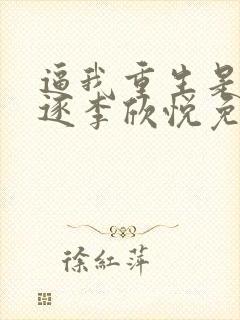 逼我重生是
逐李欣悦免
徐紅萍